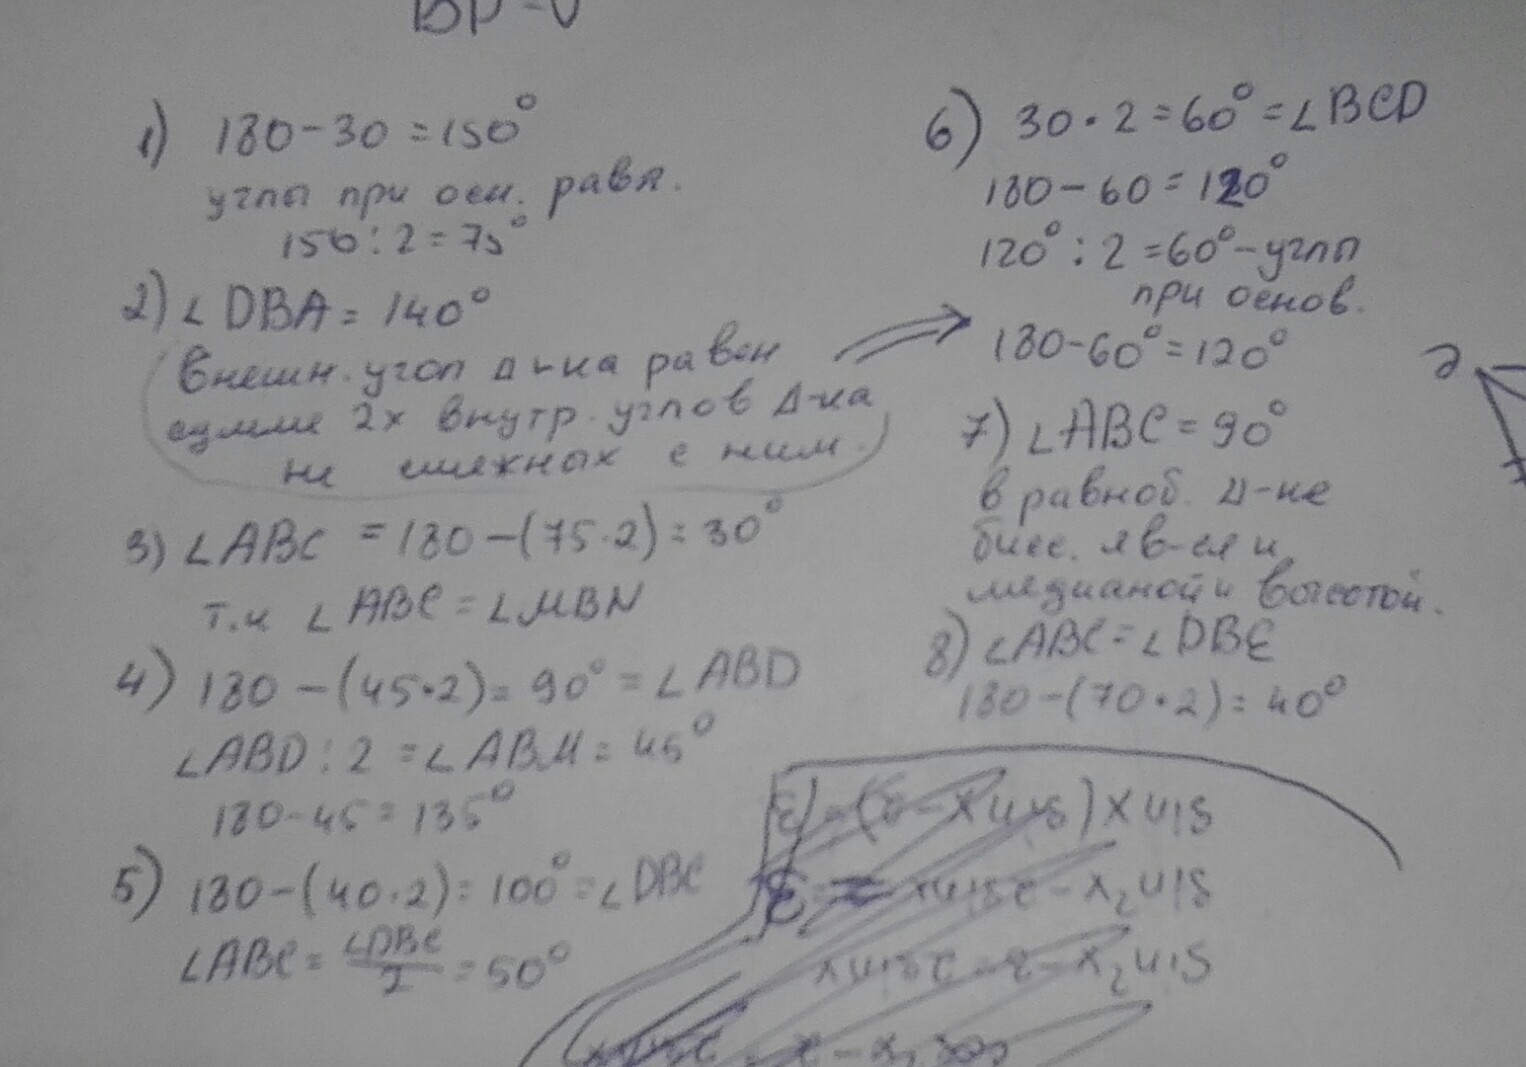 1) 180-30=150°
углы при осн. равн.
150:2=75°
2) ∠DBA=140°
Внешн. угол Δ-ка равен
сумме 2х внутр. углов Δ-ка
не смежных с ним.
3) ∠ABC = 180-(75·2)=30°
т.к ∠ABC=∠MBN
4) 180-(45·2)=90°=∠ABD
∠ABD:2=∠ABM=45°
180-45=135°
5) 180-(40·2)=100°=∠DBC
∠ABC=∠DBC/2=50°
6) 30·2=60°=∠BCD
180-60=120°
120°:2=60°-углы
при основ.
180-60°=120°
7) ∠ABC=90°
в равноб. Δ-ке
бисс. яв-ся и
медианой и высотой.
8) ∠ABC=∠DBE
180-(70·2)=40°